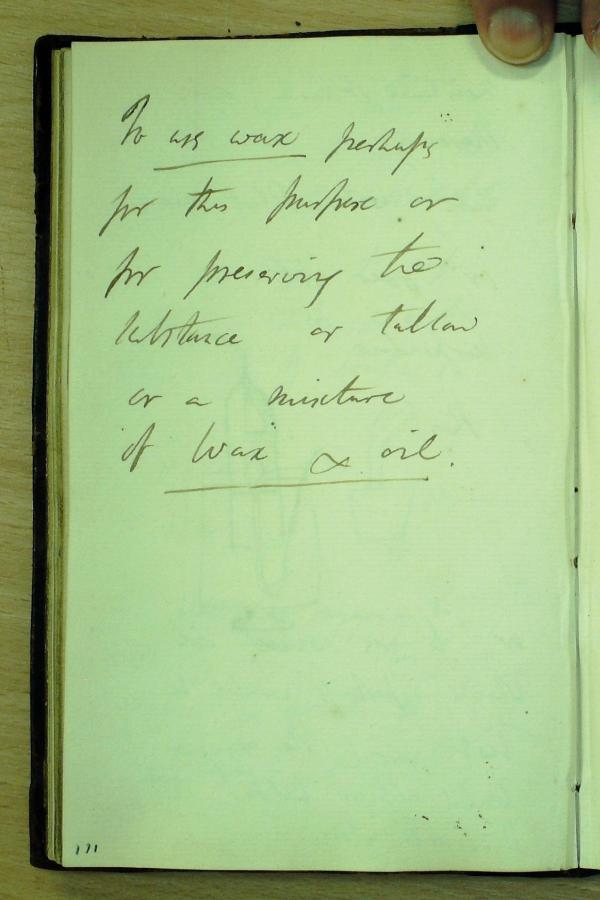 To use wax perhaps
for this purpose or
for preserving the
substance or tallow
or a mixture
of wax & oil.
171